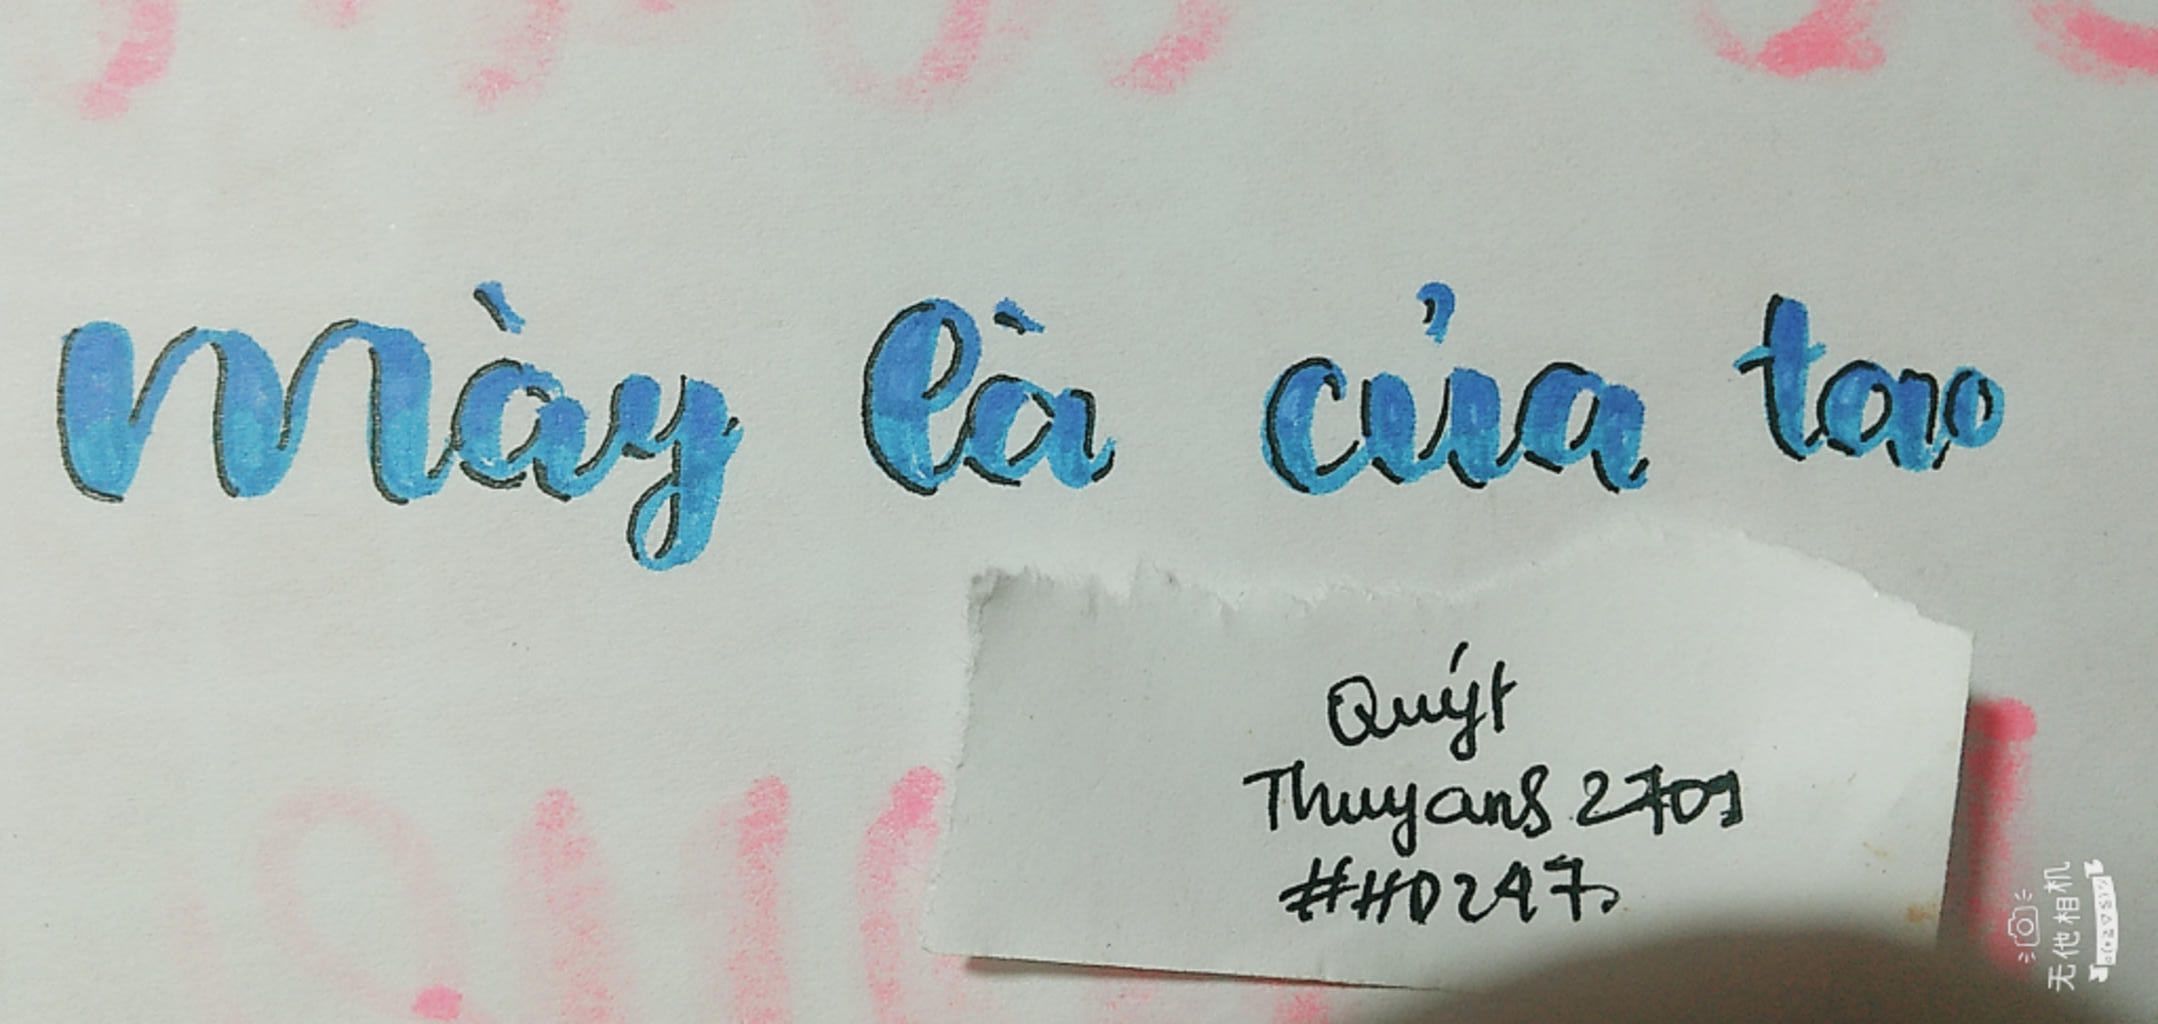 Mày là của tao
Quýt
Thuyans 2709
#HD247
无他相机